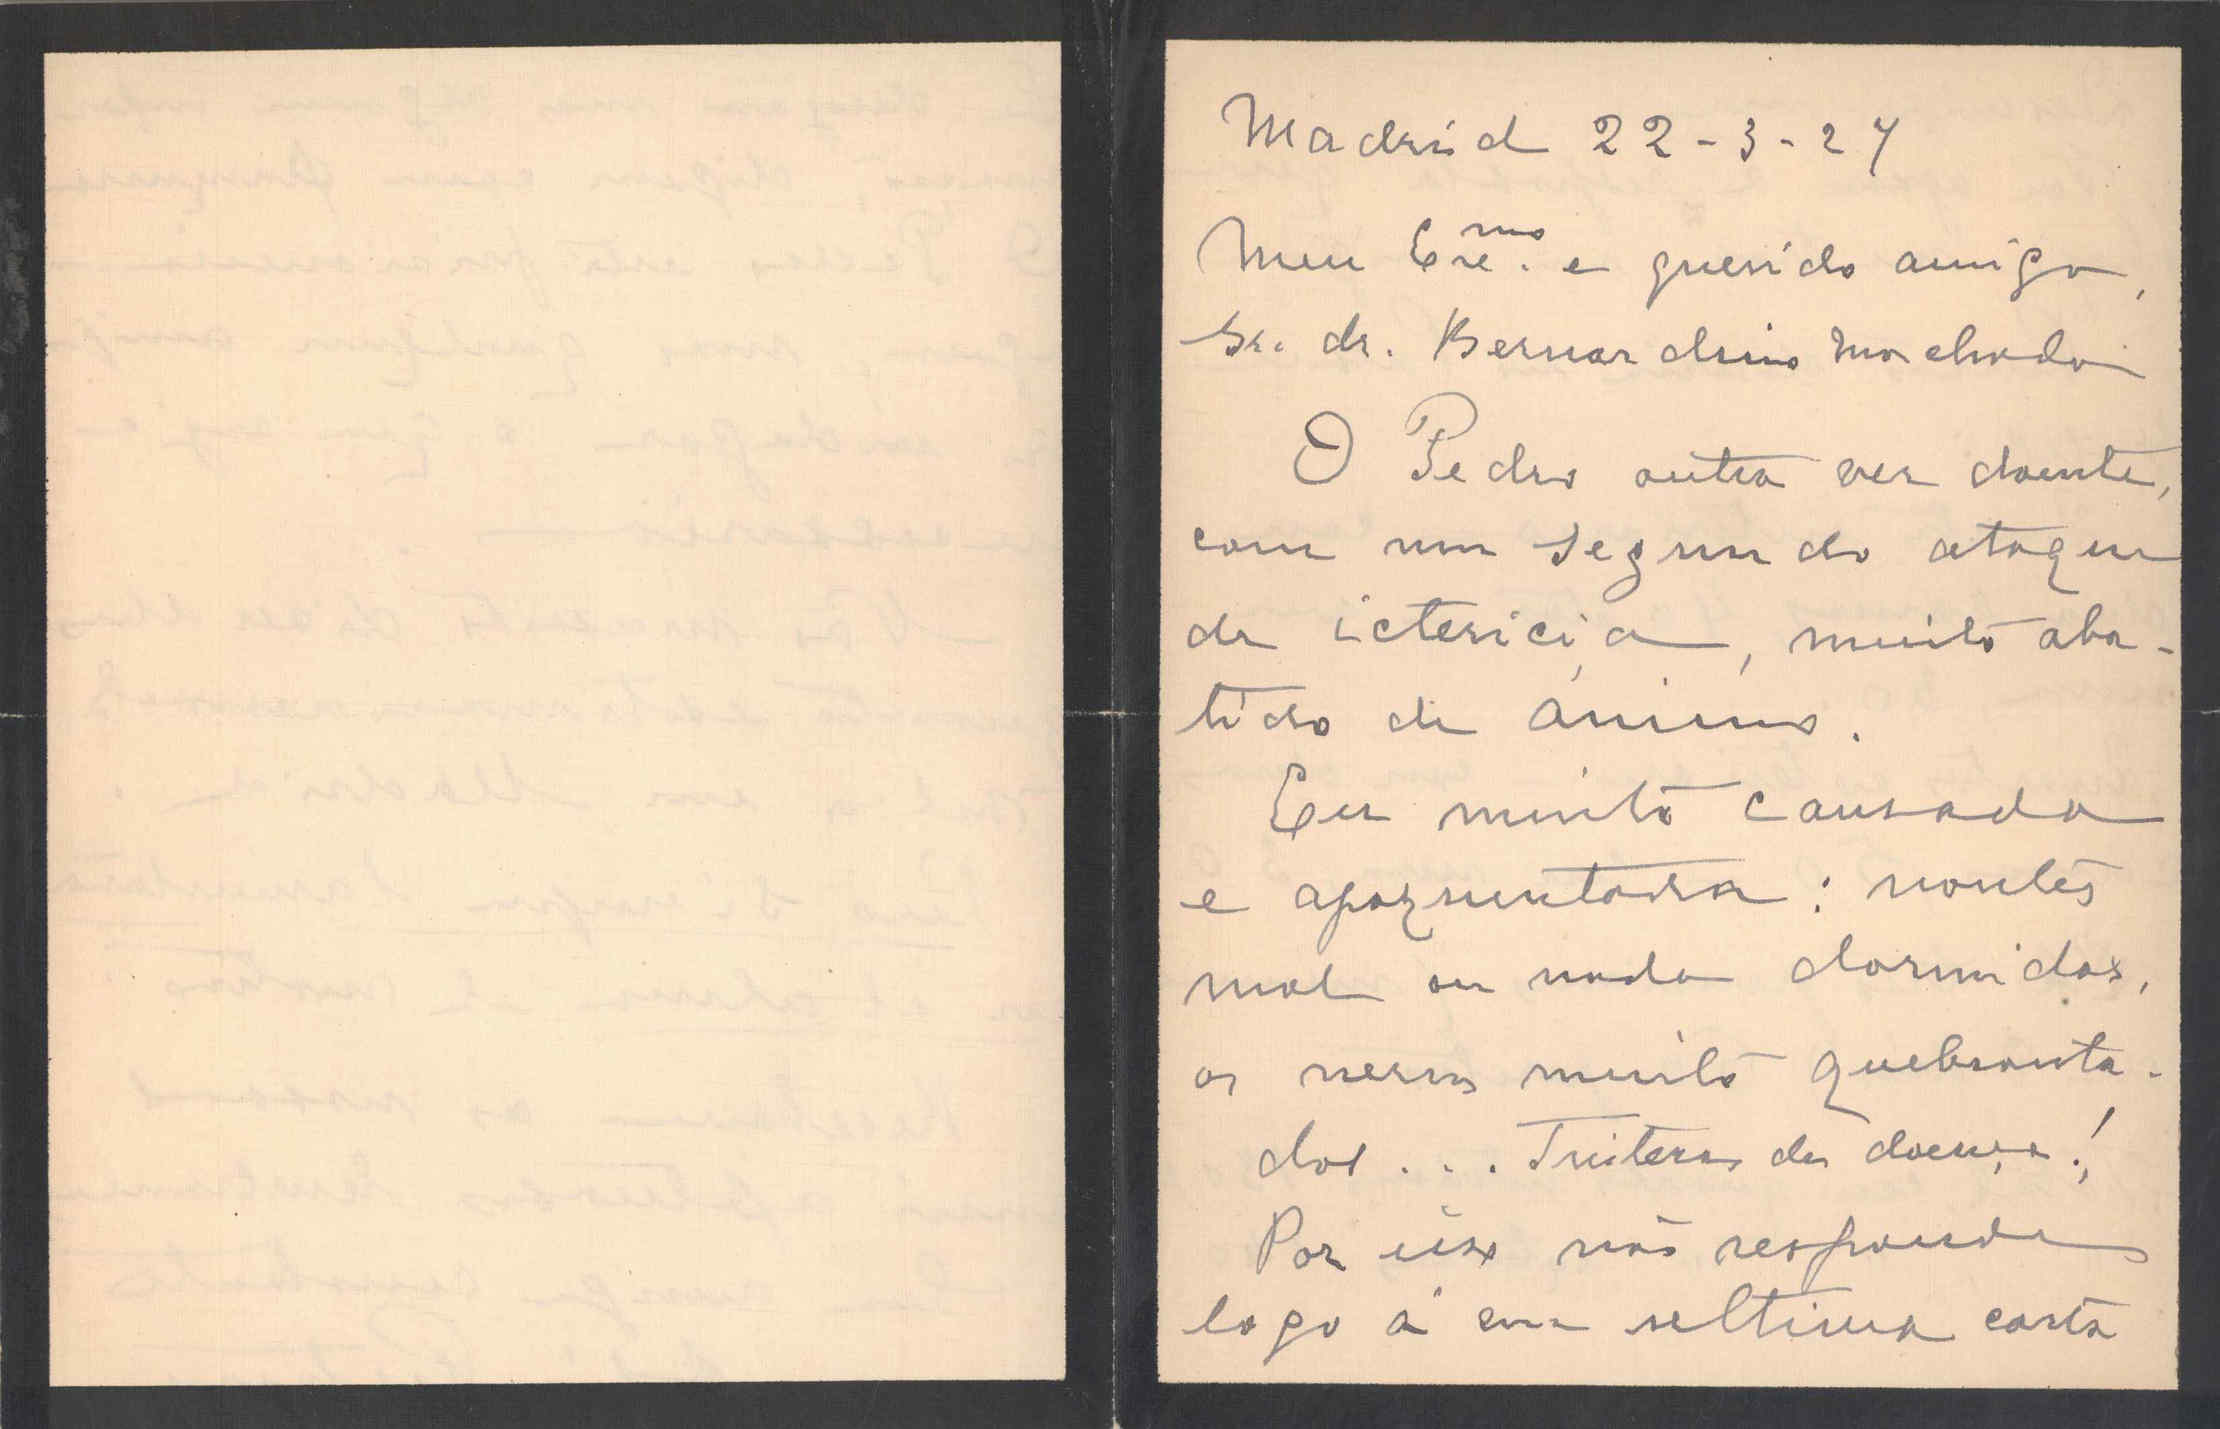 Madrid 22-3-27
Meu Exe.mo e querido amigo,
Sr. dr. Bernardino Machado
O Pedro outra vez doente,
com um segundo ataque
de ictericia, muito aba-
tido de ánimo.
Eu muito cansada
e apoquentada: noutes
mal ou nada dormidas,
os nervos muito quebranta-
dos... Tristezas da doença!
Por isso não respondemos
logo á sua ultima carta